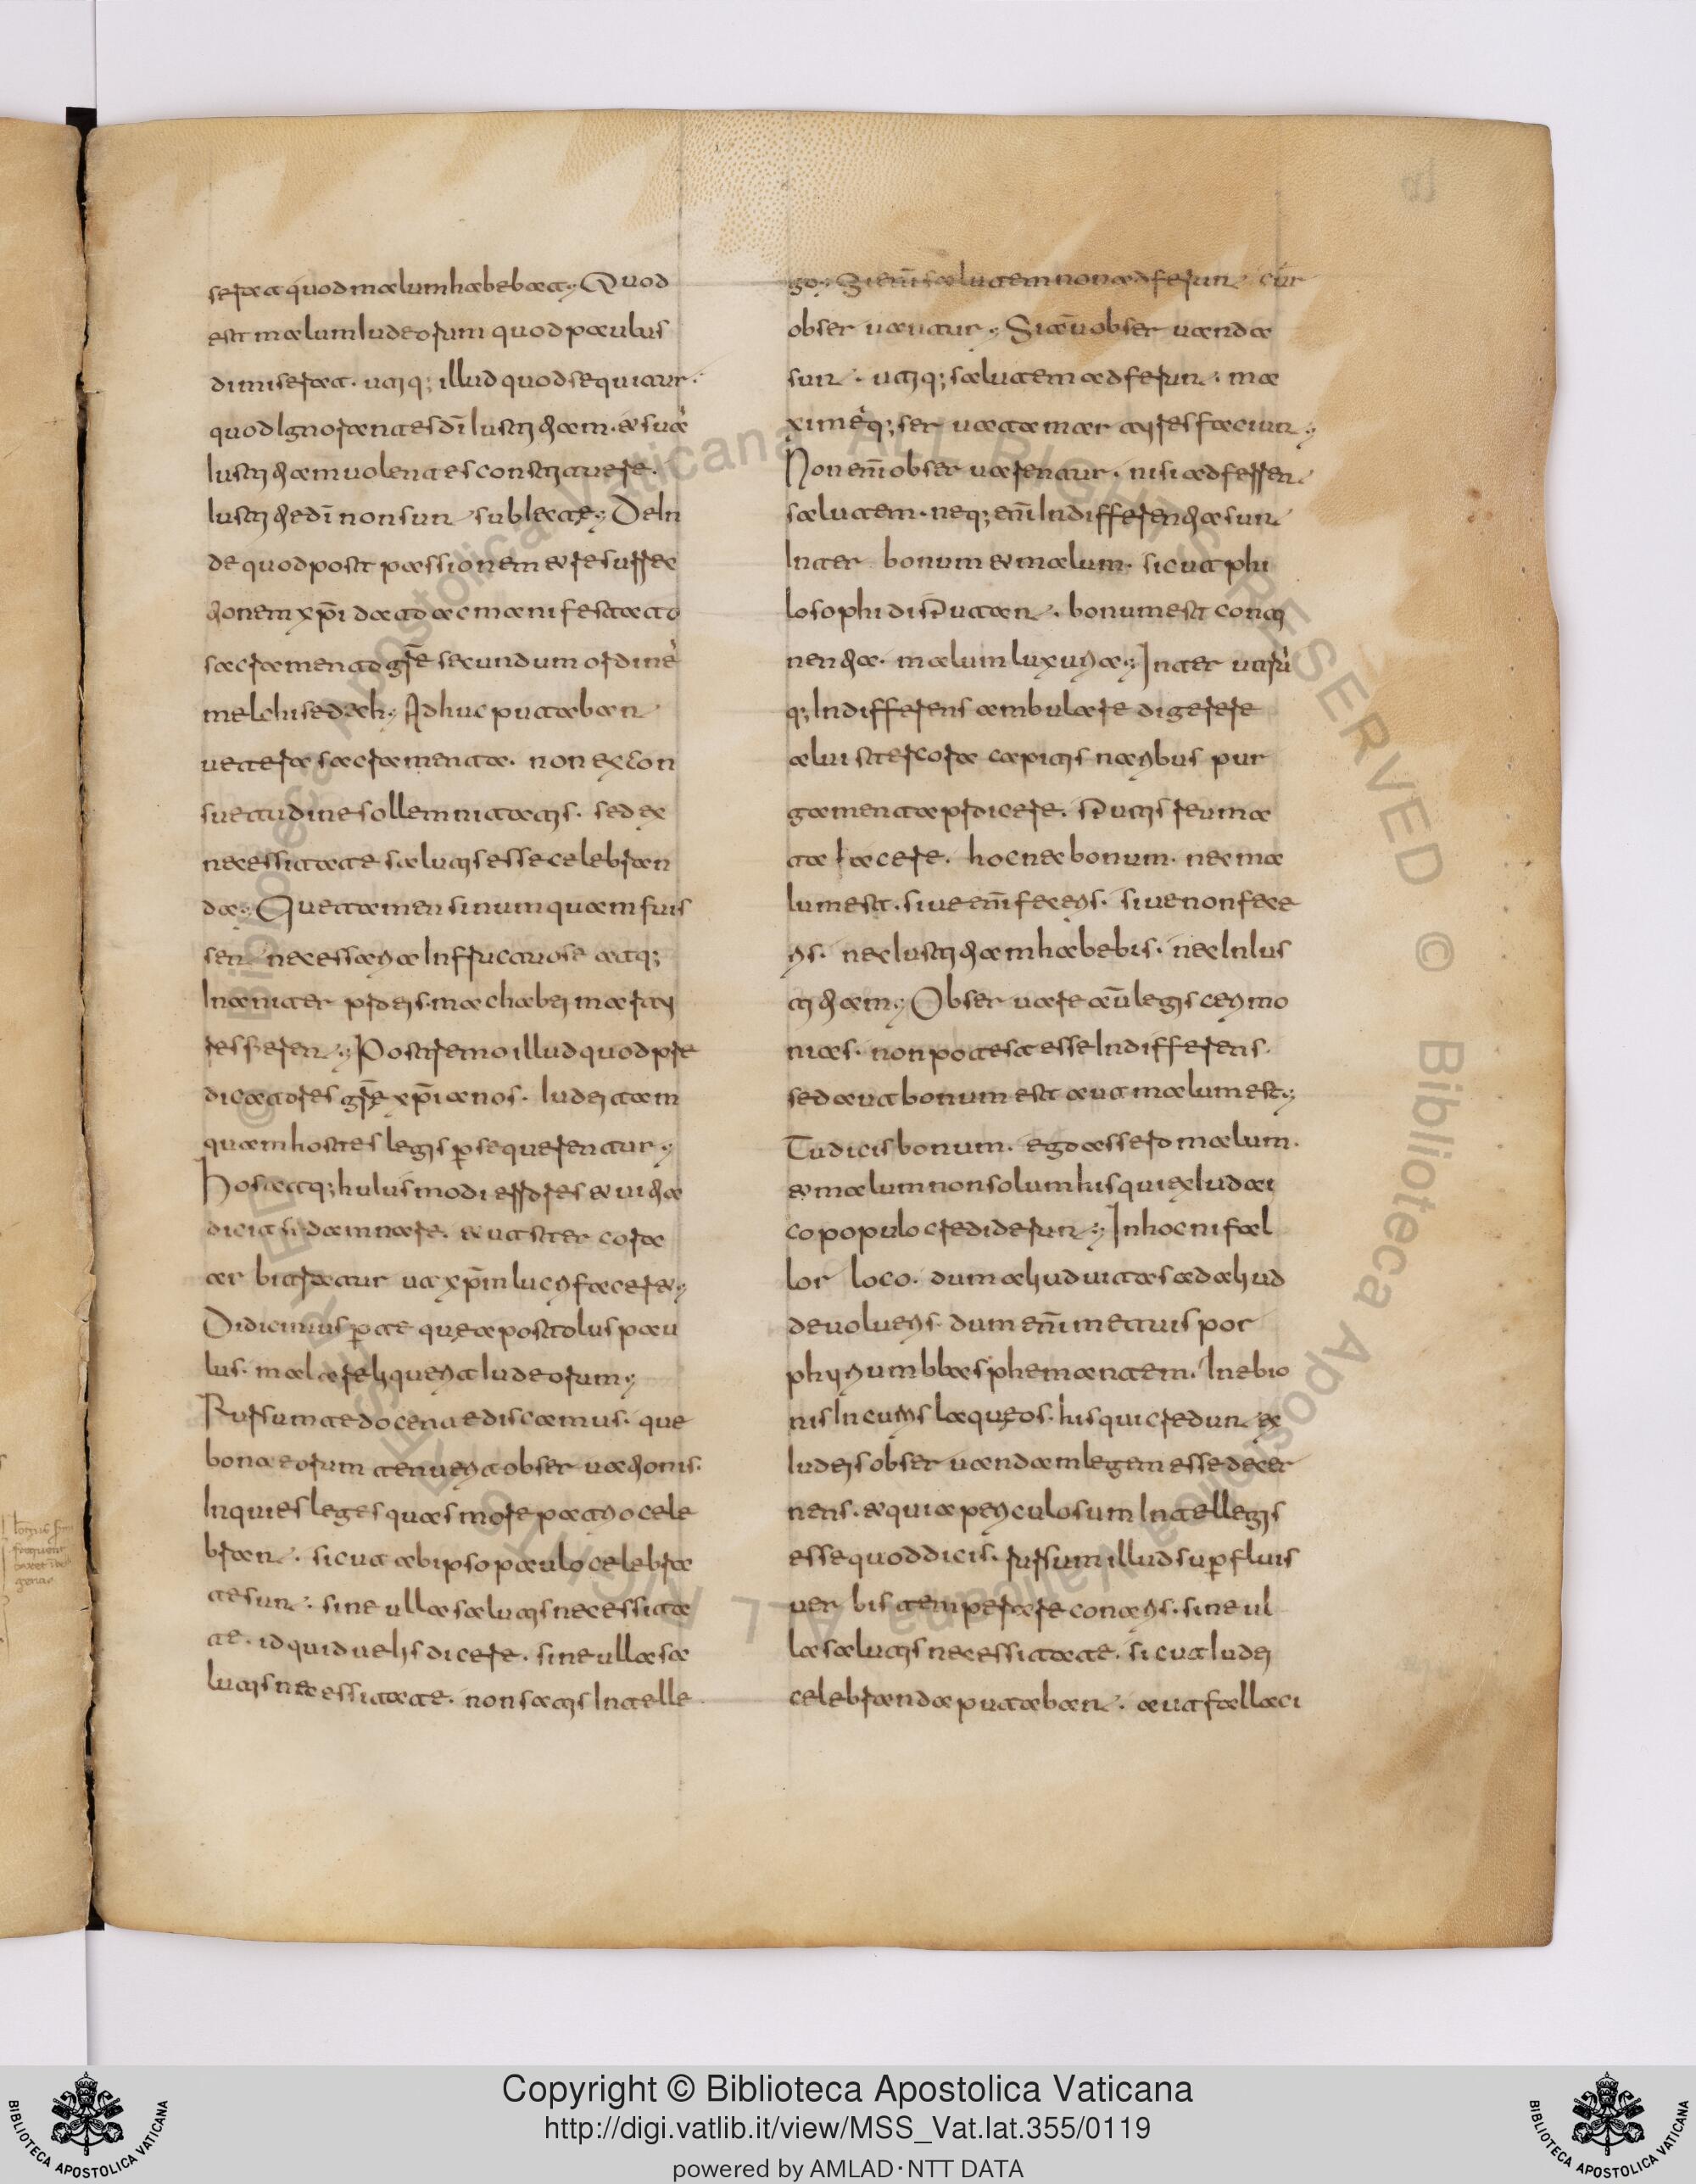 serat quod malum habebat; Quod
est malum Iudeorum quod paulus
dimiserat. utiq; illud quod sequitur.
quod Ignorantes dī Iustitiam. & suā
Iustitiam uolentes constituere.
Iustitiae dī non sunt subiectae; DeIn
de quod post passionem & resurrec
tionem xp̄i dato ac manifestato
sacramento grē secundum ordinē
melchisedech; Adhuc putabant
uetera sacramenta. non ex con
suetudine sollemnitatis. sed ex
necessitate salutis esse celebran
da; Que tamen si numquam fuis
sent necessaria Infructuose atq;
Inaniter p̱ro eis machabei marty
res fierent; Postremo illud quod pre
dicatores grē xp̄ianos. Iudei tam
quam hostes legis ꝑsequerentur;
Hos atq; huIusmodi errores & uitia
dicit se damnare. & ut stercora
arbitratur ut xp̄m lucrifaceret;
Didicimus ꝑ te que apostolus pau
lus. mala reliquerit Iudeorum;
Rursum te docente discamus. que
bona eorum tenuerit obseruationis.
Inquies leges quas more patrio cele
brant. sicut ab ipso paulo celebra
te sunt. sine ulla salutis necessita
te. id quid uelis dicere. sine ulla sa
lutis necessitate. non satis Intelle
go; Si enī salutem non adferunt cur
obseruantur; Si aū obseruanda
sunt. utiq; salutem adferunt. ma
ximeq; seruata martyres faciunt;
Non enī obseruarentur. nisi adferrent
salutem. neq; enī Indifferentia sunt
Inter bonum & malum. sicut phi
losophi disputant. bonum est conti
nentia. malum luxuria; Inter utrū
q; Indifferens ambulare digerere
alui stercora capitis naribus pur
gamenta proicere. sputis reuma
ta Iacere. hoc nec bonum. nec ma
lum est. siue enī feceris. siue non fece
ris. nec Iustitiam habebis. nec InIus
titiam; Obseruare aū legis cerimo
nias. non potest esse Indifferens.
sed aut bonum est aut malum est;
Tu dicis bonum. ego assero malum.
& malum non solum his qui ex Iudai
co populo crediderunt; In hoc ni fal
lor loco. dum aliud uitas ad aliud
deuolueris. dum enī metuis por
phirium blasphemantem. In ebio
nis Incurris laqueos. his qui credunt ex
Iudeis obseruandam legem esse decer
nens. & quia periculosum Intellegis
esse quod dicis. rursum illud suꝑfluis
uerbis temperare conaris. sine ul
la salutis necessitate. sicut Iudei
celebranda putabant. aut fallaci
Copyright © Biblioteca Apostolica Vaticana
http://digi.vatlib.it/view/MSS_Vat.lat.355/0119
powered by AMLAD·NTT DATA